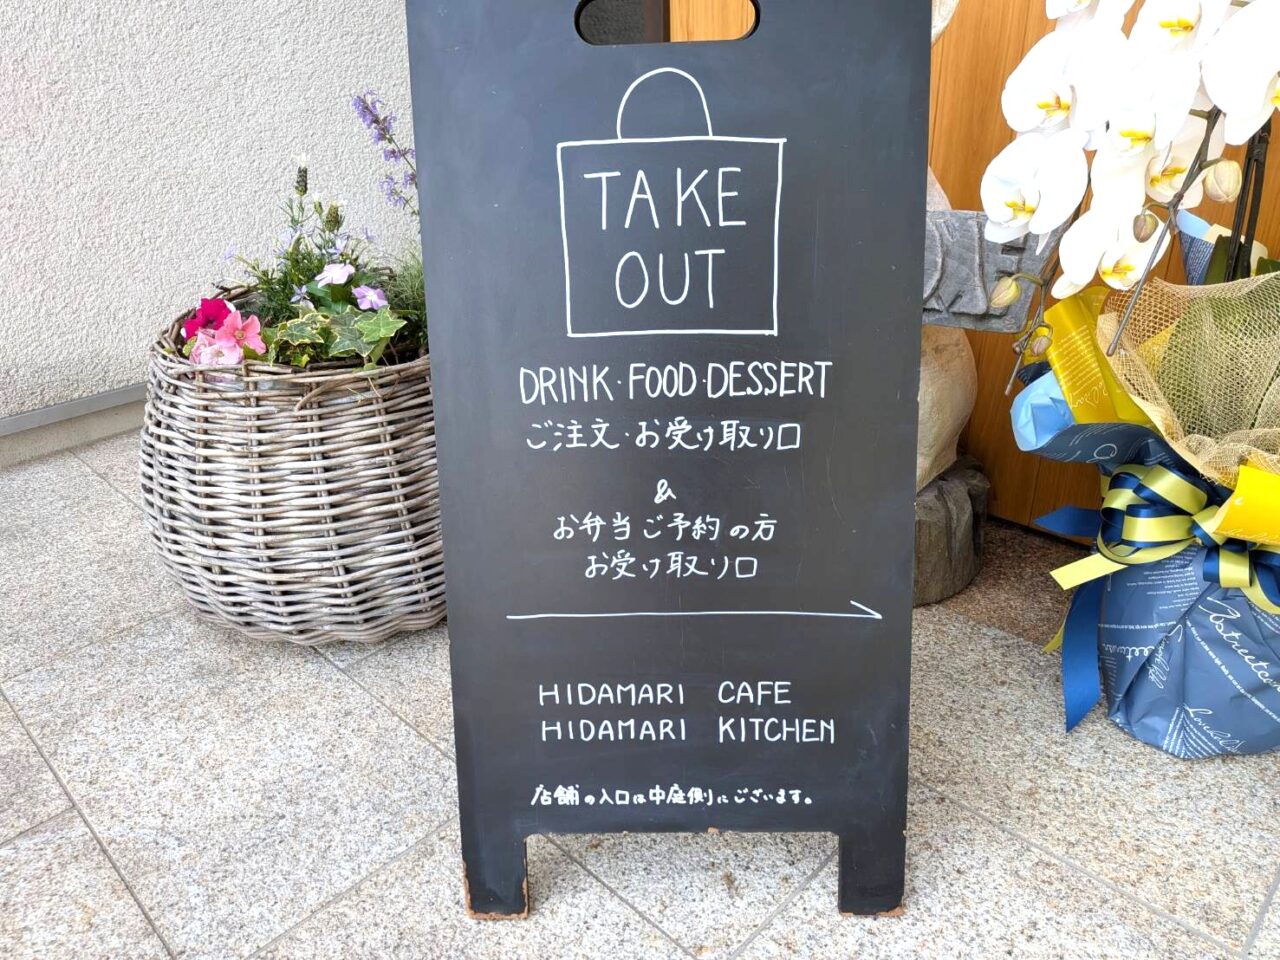 TAKE
OUT
DRINK・FOOD・DESSERT
ご注文・お受け取り口
&
お弁当ご予約の方
お受け取り口
HIDAMARI CAFE
HIDAMARI KITCHEN
店舗の入口は中庭側にございます。